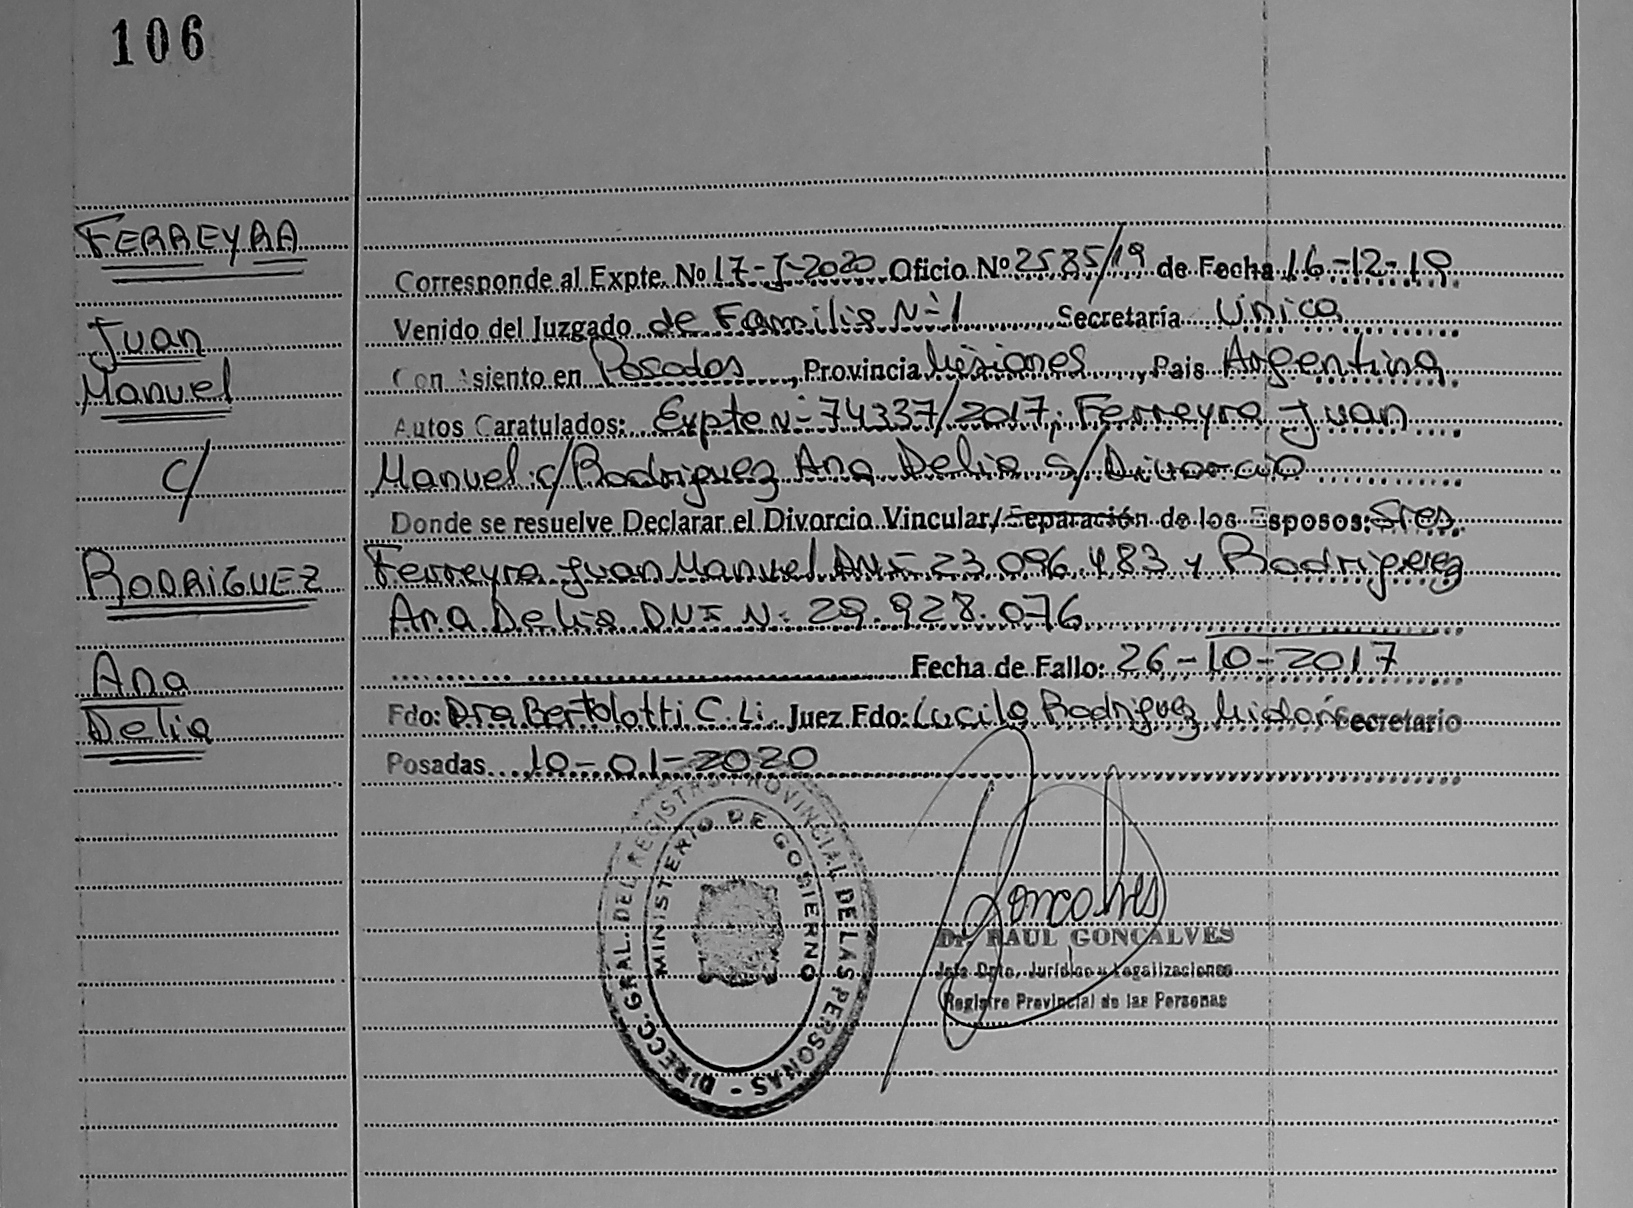 106
FERREYRA
Juan
Manuel
c/
RODRIGUEZ
Ana
Delia
Corresponde al Expte. Nº 17-J-2020 Oficio Nº 2585/19 de Fecha 16-12-19
Venido del Juzgado de Familia Nº1 Secretaría Unica
Con Asiento en Posadas, Provincia Misiones, Pais Argentina
Autos Caratulados: Expte Nº 74337/2017; Ferreyra Juan
Manuel c/Rodriguez Ana Delia s/Divorcio
Donde se resuelve Declarar el Divorcio Vincular/Separación de los Esposos: Sres.
Ferreyra Juan Manuel DNI 23.096.483 y Rodriguez
Ana Delia DNI Nº 29.928.076
Fecha de Fallo: 26-10-2017
Fdo: Dra Bertolotti C. Li. Juez Fdo: Lucila Rodriguez Secretario
Posadas 10-01-2020
DIRECC. GRAL. DEL REGISTRO PROVINCIAL DE LAS PERSONAS -
MINISTERIO DE GOBIERNO
Goncalves
Dr. RAUL GONCALVES
Jefe Dpto. Jurídico y Legalizaciones
Registro Provincial de las Personas